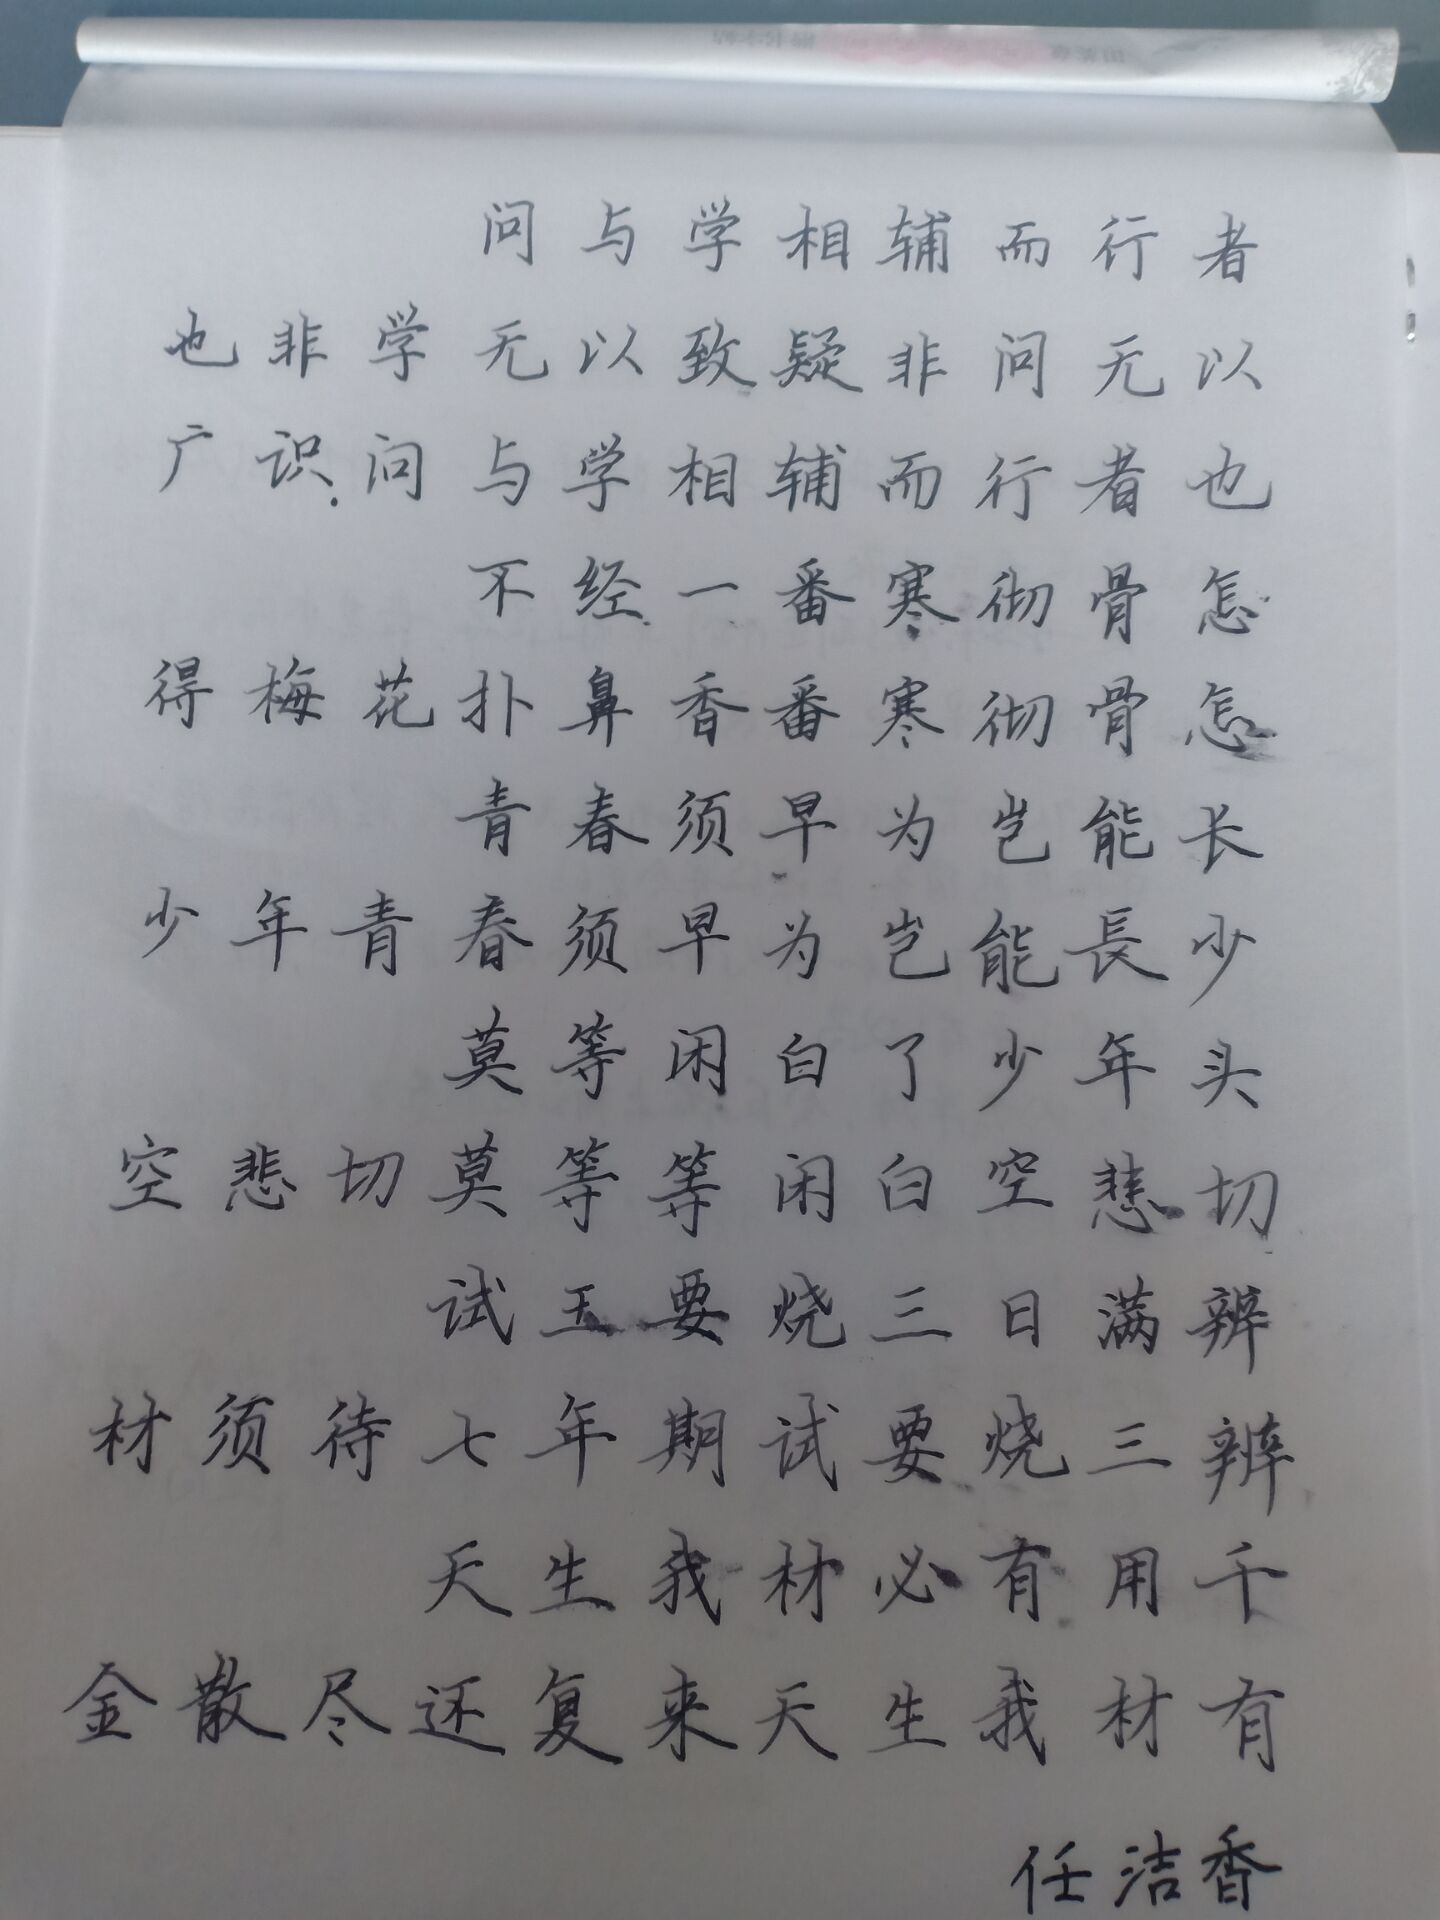 问与学相辅而行者
也非学无以致疑非问无以
广识.问与学相辅而行者也
不经一番寒彻骨怎
得梅花扑鼻香番寒彻骨怎
青春须早为岂能长
少年青春须早为岂能長少
莫等闲白了少年头
空悲切莫等等闲白空悲切
试玉要烧三日满辨
材须待七年期试要烧三辨
天生我材必有用千
金散尽还复来天生我材有
任洁香